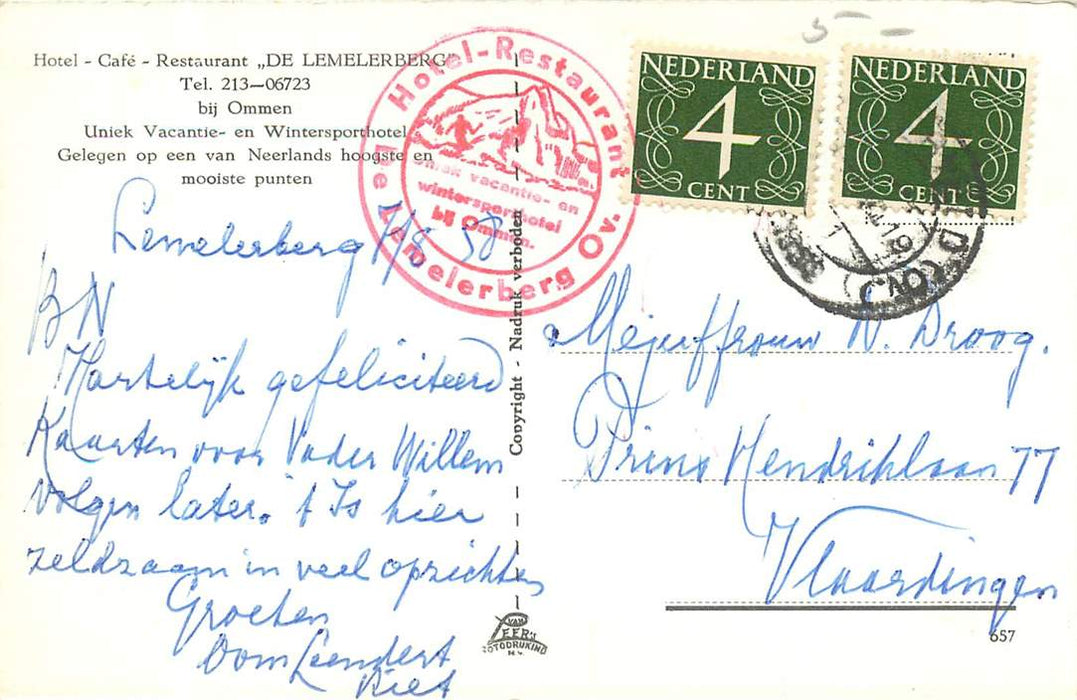 5-
Hotel - Café - Restaurant „DE LEMELERBERG”
Tel. 213—06723
bij Ommen
Uniek Vacantie- en Wintersporthotel
Gelegen op een van Neerlands hoogste en
mooiste punten
Hotel-Restaurant
De Lemelerberg Ov.
Uniek vacantie- en
wintersporthotel
bij Ommen.
NEDERLAND
4
CENT
NEDERLAND
4
CENT
Lemelerberg 1/8 58
BN
Hartelijk gefeliciteerd
Kaarten voor Vader Willem
volgen later. 't Is hier
zeldzaam in veel opzichten
Groeten
Oom Leendert
Piet
Copyright - Nadruk verboden
Mejuffrouw N. Droog.
Prins Hendriklaan 77
Vlaardingen
VAN
LEER'S
FOTODRUKIND
N.V.
657